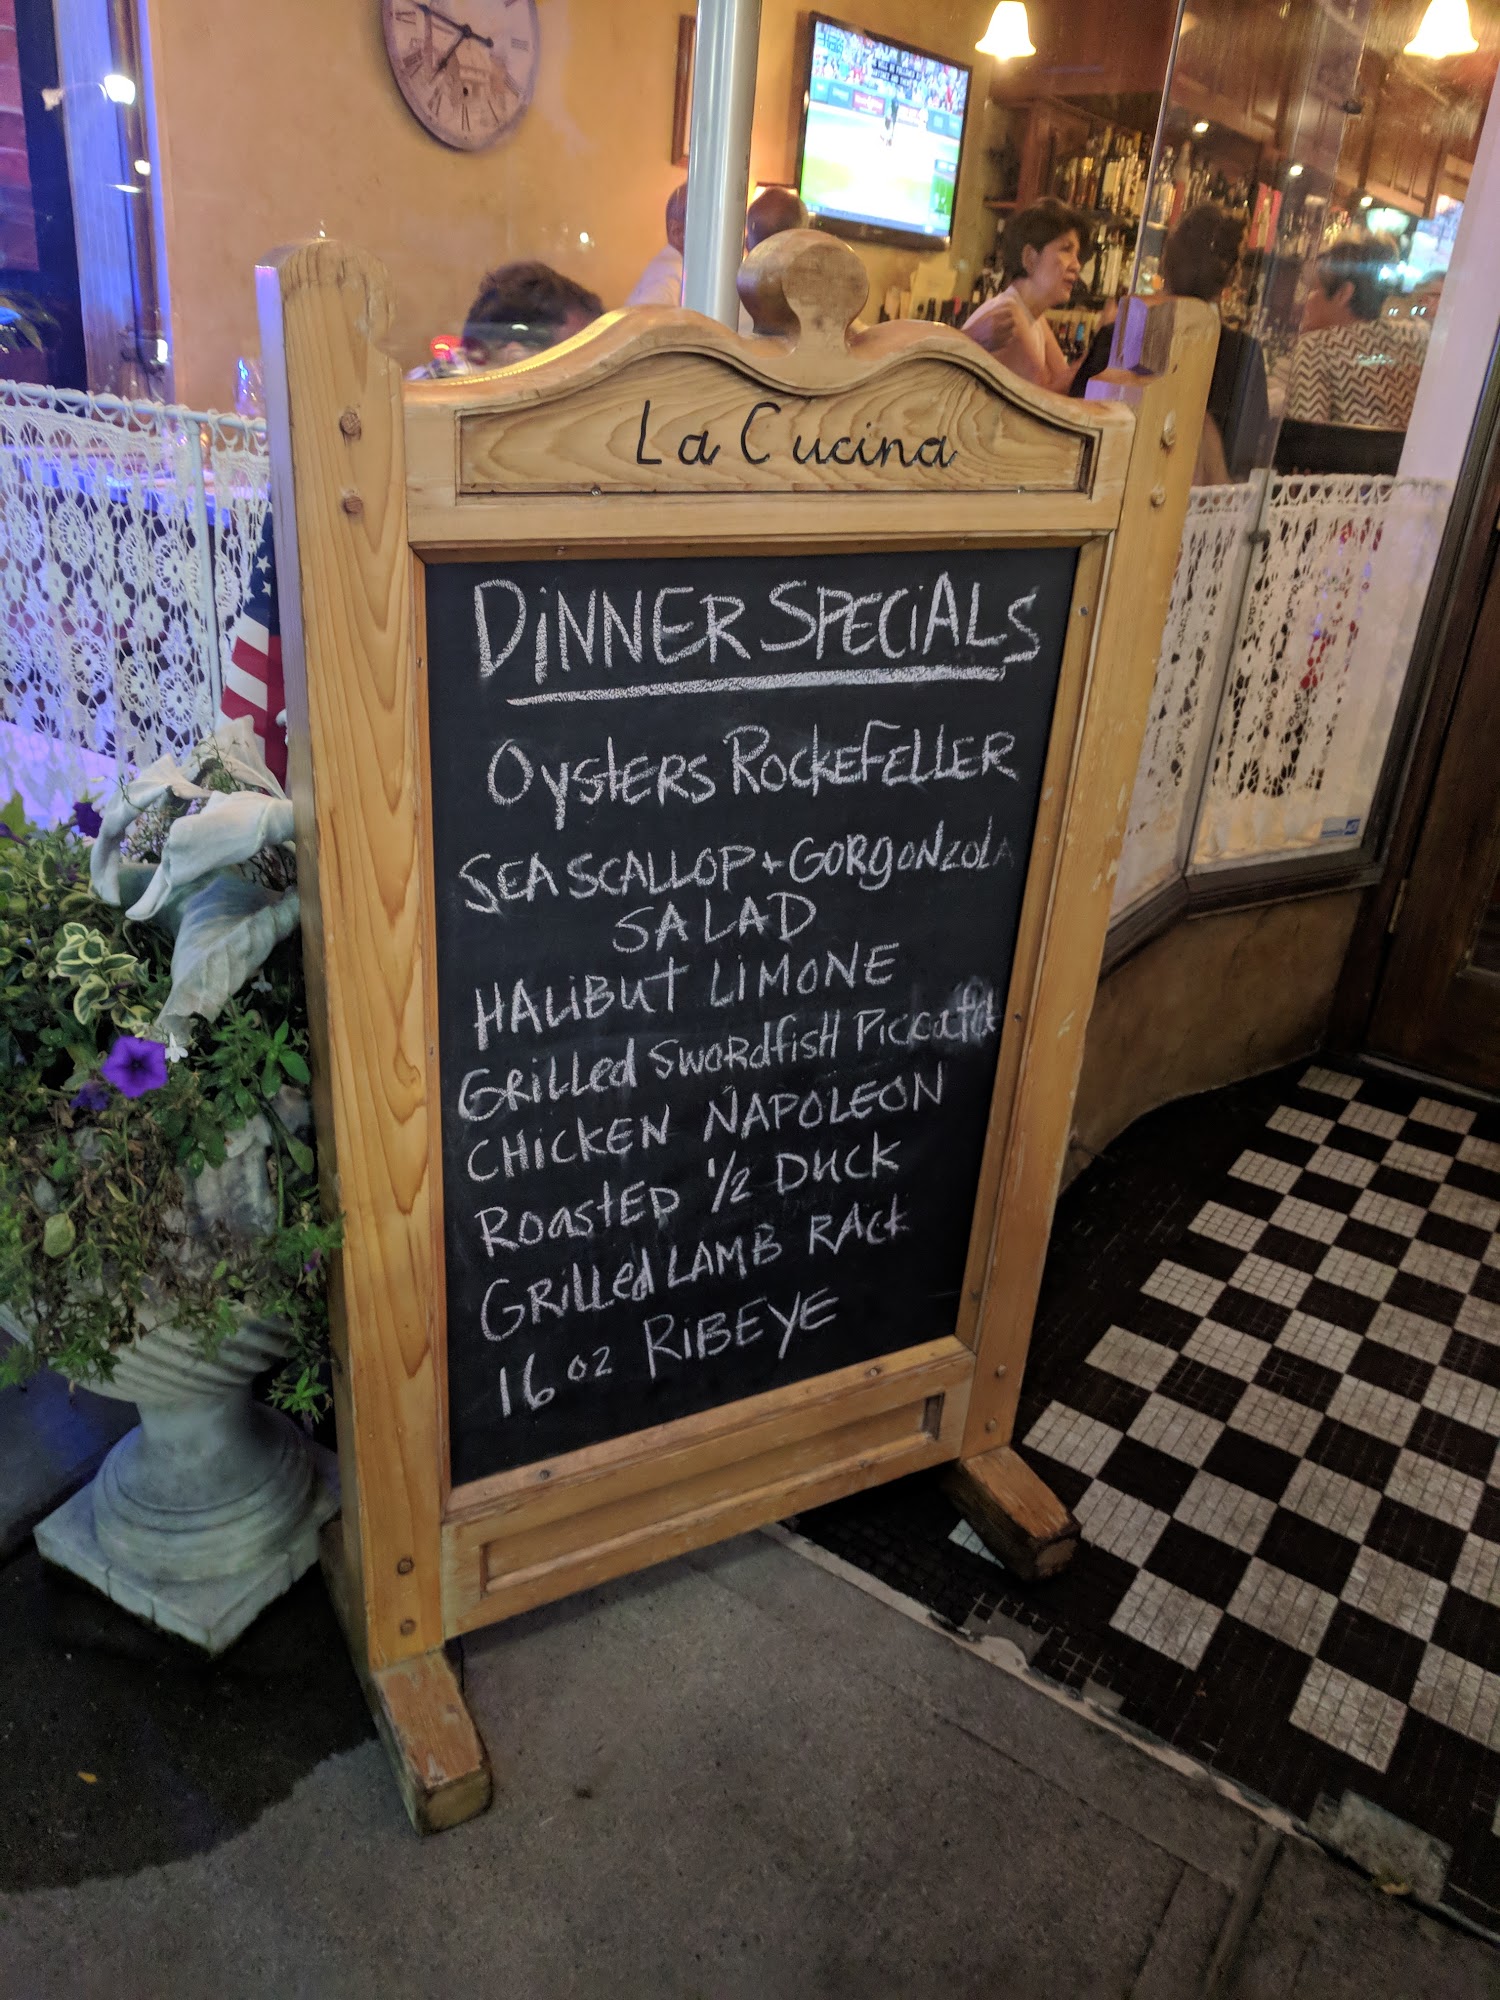 La Cucina
DiNNER SPECiALS
OysTERS ROCKEFELLER
SEA SCALLOP + GORgONZOLA
SALAD
HALiBUT LIMONE
GRilled SwoRdfisH Piccata
CHiCKEN NAPOLEON
ROasTED 1/2 DUCK
GRilled LAMB RACK
16 oz RiBEYE